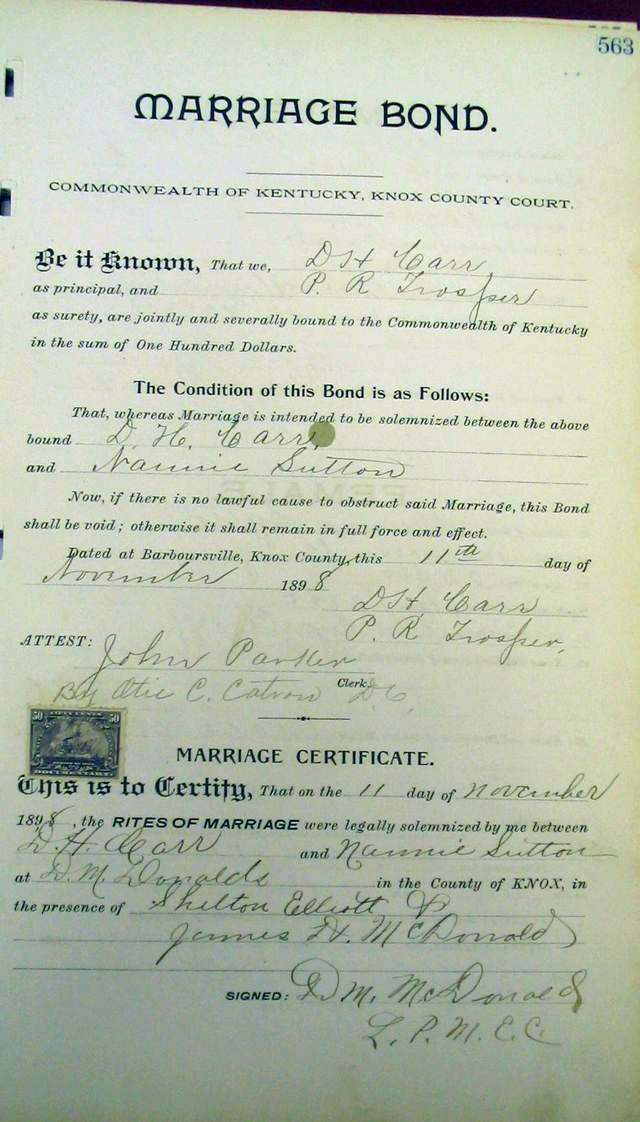 563
MARRIAGE BOND.
COMMONWEALTH OF KENTUCKY, KNOX COUNTY COURT.
Be it Known, That we, D H Carr
as principal, and P. R Trosper
as surety, are jointly and severally bound to the Commonwealth of Kentucky
in the sum of One Hundred Dollars.
The Condition of this Bond is as Follows:
That, whereas Marriage is intended to be solemnized between the above
bound D. H. Carr
and Nannie Sutton
Now, if there is no lawful cause to obstruct said Marriage, this Bond
shall be void; otherwise it shall remain in full force and effect.
Dated at Barboursville, Knox County, this 11th day of
November 1898
D H Carr
P. R Trosper,
ATTEST:
John Parker Clerk,
By Otie C. Catron D C,
50 50
DOCUMENTARY
MARRIAGE CERTIFICATE.
This is to Certify, That on the 11 day of November
1898, the RITES OF MARRIAGE were legally solemnized by me between
D. H. Carr and Nannie Sutton
at D. M. Donalds in the County of KNOX, in
the presence of Shelton Elliott &
James H. McDonald
SIGNED: D. M. McDonald
L. P. M. E. C.